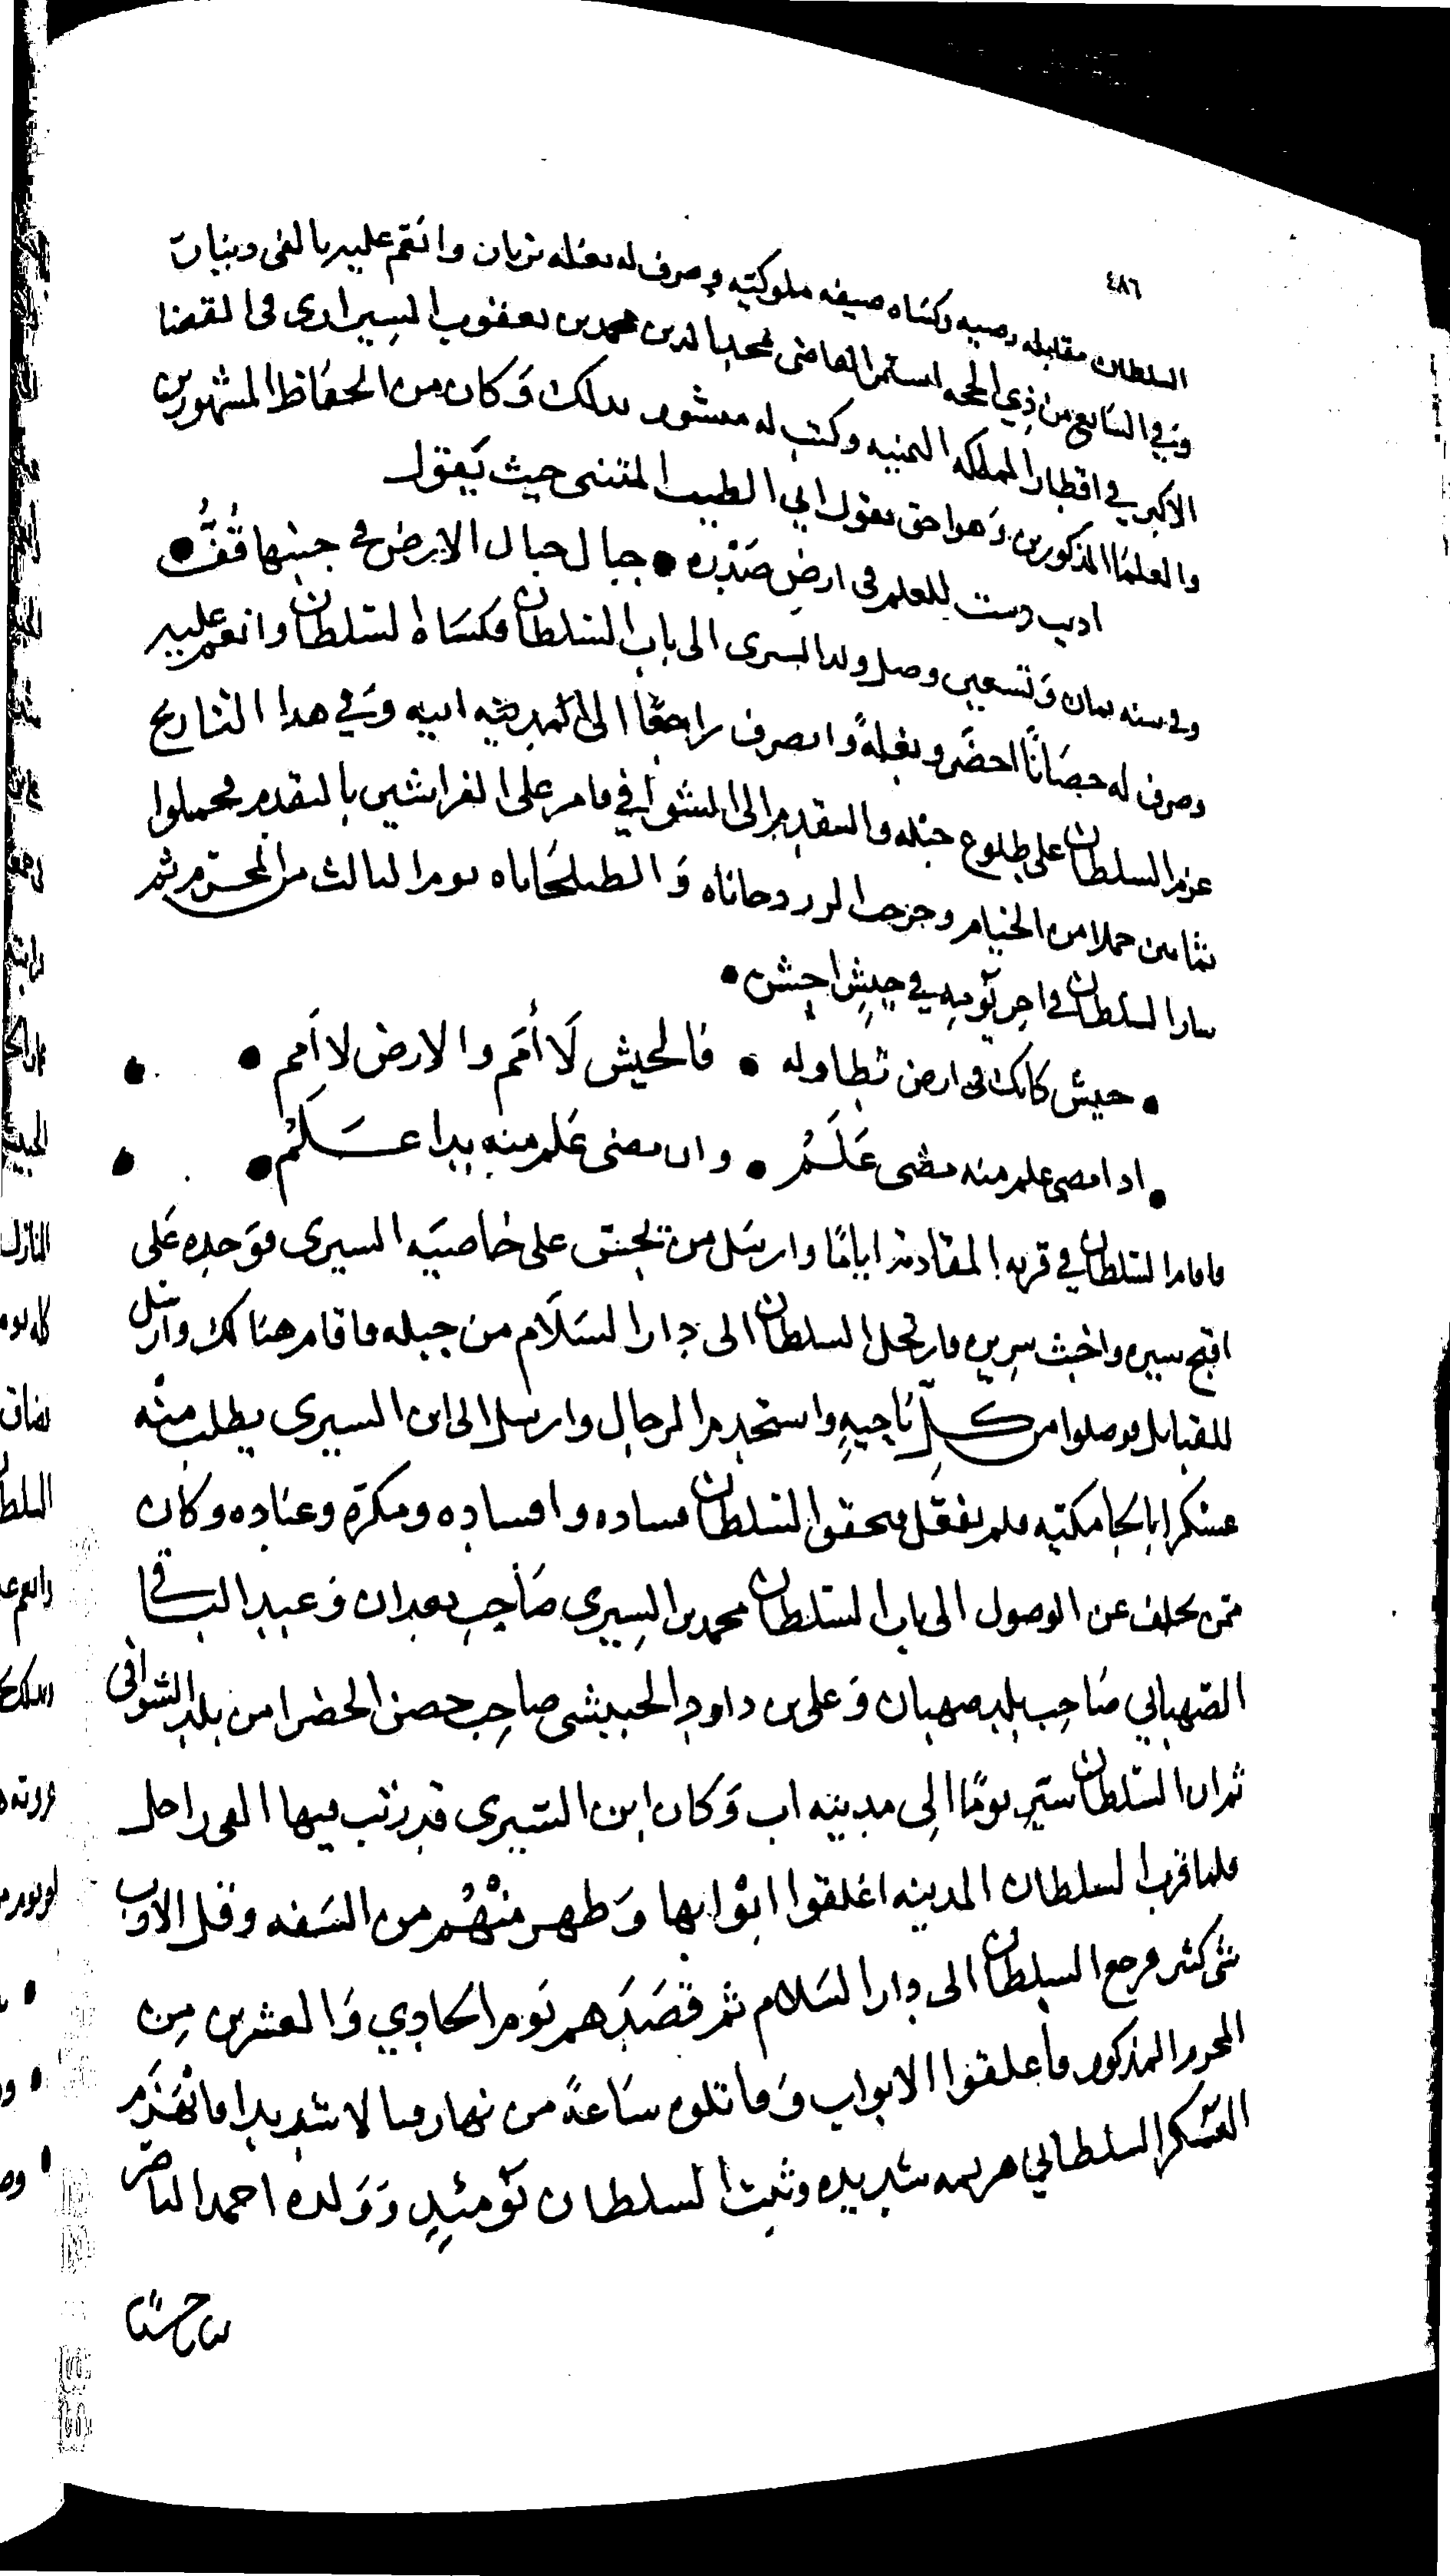 ٤٨٦
السلطان مقابله رضيه وكساه صيفه ملوكيه وصرف له بغله بزنار وانعم عليه بالفى دينار
وفي السابع من ذي الحجه استمر القاضى مجد الدين محمد بن يعقوب الشيرازى فى القضا
الاكبر في اقطار المملكه اليمنيه وكتب له منشور بذلك وكان من الحفاظ المشهورين
والعلما المذكورين وهو احق بقول ابي الطيب المتنبى حيث يقول
اديب رست للعلم فى ارض صدره • جبال جبال الارض في جنبها قُفُّ •
وفى سنه ثمان وتسعين وصل ولد السيرى الى باب السلطان فكساه السلطان وانعم عليه
وصرف له حصانًا اخضر وبغلةً وانصرف راجعًا الى مدينه ابيه وفي هذا التاريخ
عزم السلطان على طلوع جبله والتقدم الى الشوافي فامر على الفراشين بالتقدم فحملوا
ثمانين حملا من الخيام وخرجت الزردخاناه والطبلخاناه يوم الثالث من المحرم ثم
سار السلطان في اخر يومه في جيش اجش •
• جيش كانك فى ارض تطاوله • فالجيش لا أَمَم والارض لا أمم •
• اذا مضى علم منه مضى عَلَمُ • وان مضى علم منه بدا عَلَمُ •
فاقام السلطان في قريه المقادمه ايامًا وارسل من تجسس على خاصيه السيرى فوجده على
اقبح سيره واخبث سريره فارتحل السلطان الى دار السلام من جبله فاقام هنالك وارسل
للقبايل فوصلوا من كل ناحيهٍ واستخدم الرجال وارسل الى ابن السيرى يطلب منه
عسكرا بالجامكيه فلم يفعل فتحقق السلطان فساده وافساده ومكره وعناده وكان
ممن تخلف عن الوصول الى باب السلطان محمد بن السيرى صاحب بعدان وعبد الباقى
الصهباني صاحب بلد صهبان وعلى بن داود الحبيشى صاحب حصن الخضرا من بلد الشوافى
ثم ان السلطان سيّر يومًا الى مدينه اب وكان ابن السيرى قد رتب فيها الفى راجل
فلما قرب السلطان المدينه اغلقوا ابوابها وظهر منهُم من السفه وقل الادب
شى كثير فرجع السلطان الى دار السلام ثم قصدهم يوم الحادي والعشرين من
المحرم المذكور فاغلقوا الابواب وقاتلوه ساعةً من نهار قتالا شديدا فانهزم
العسكر السلطاني هزيمه شديده وثبت السلطان يومئذٍ وولده احمد الناصر